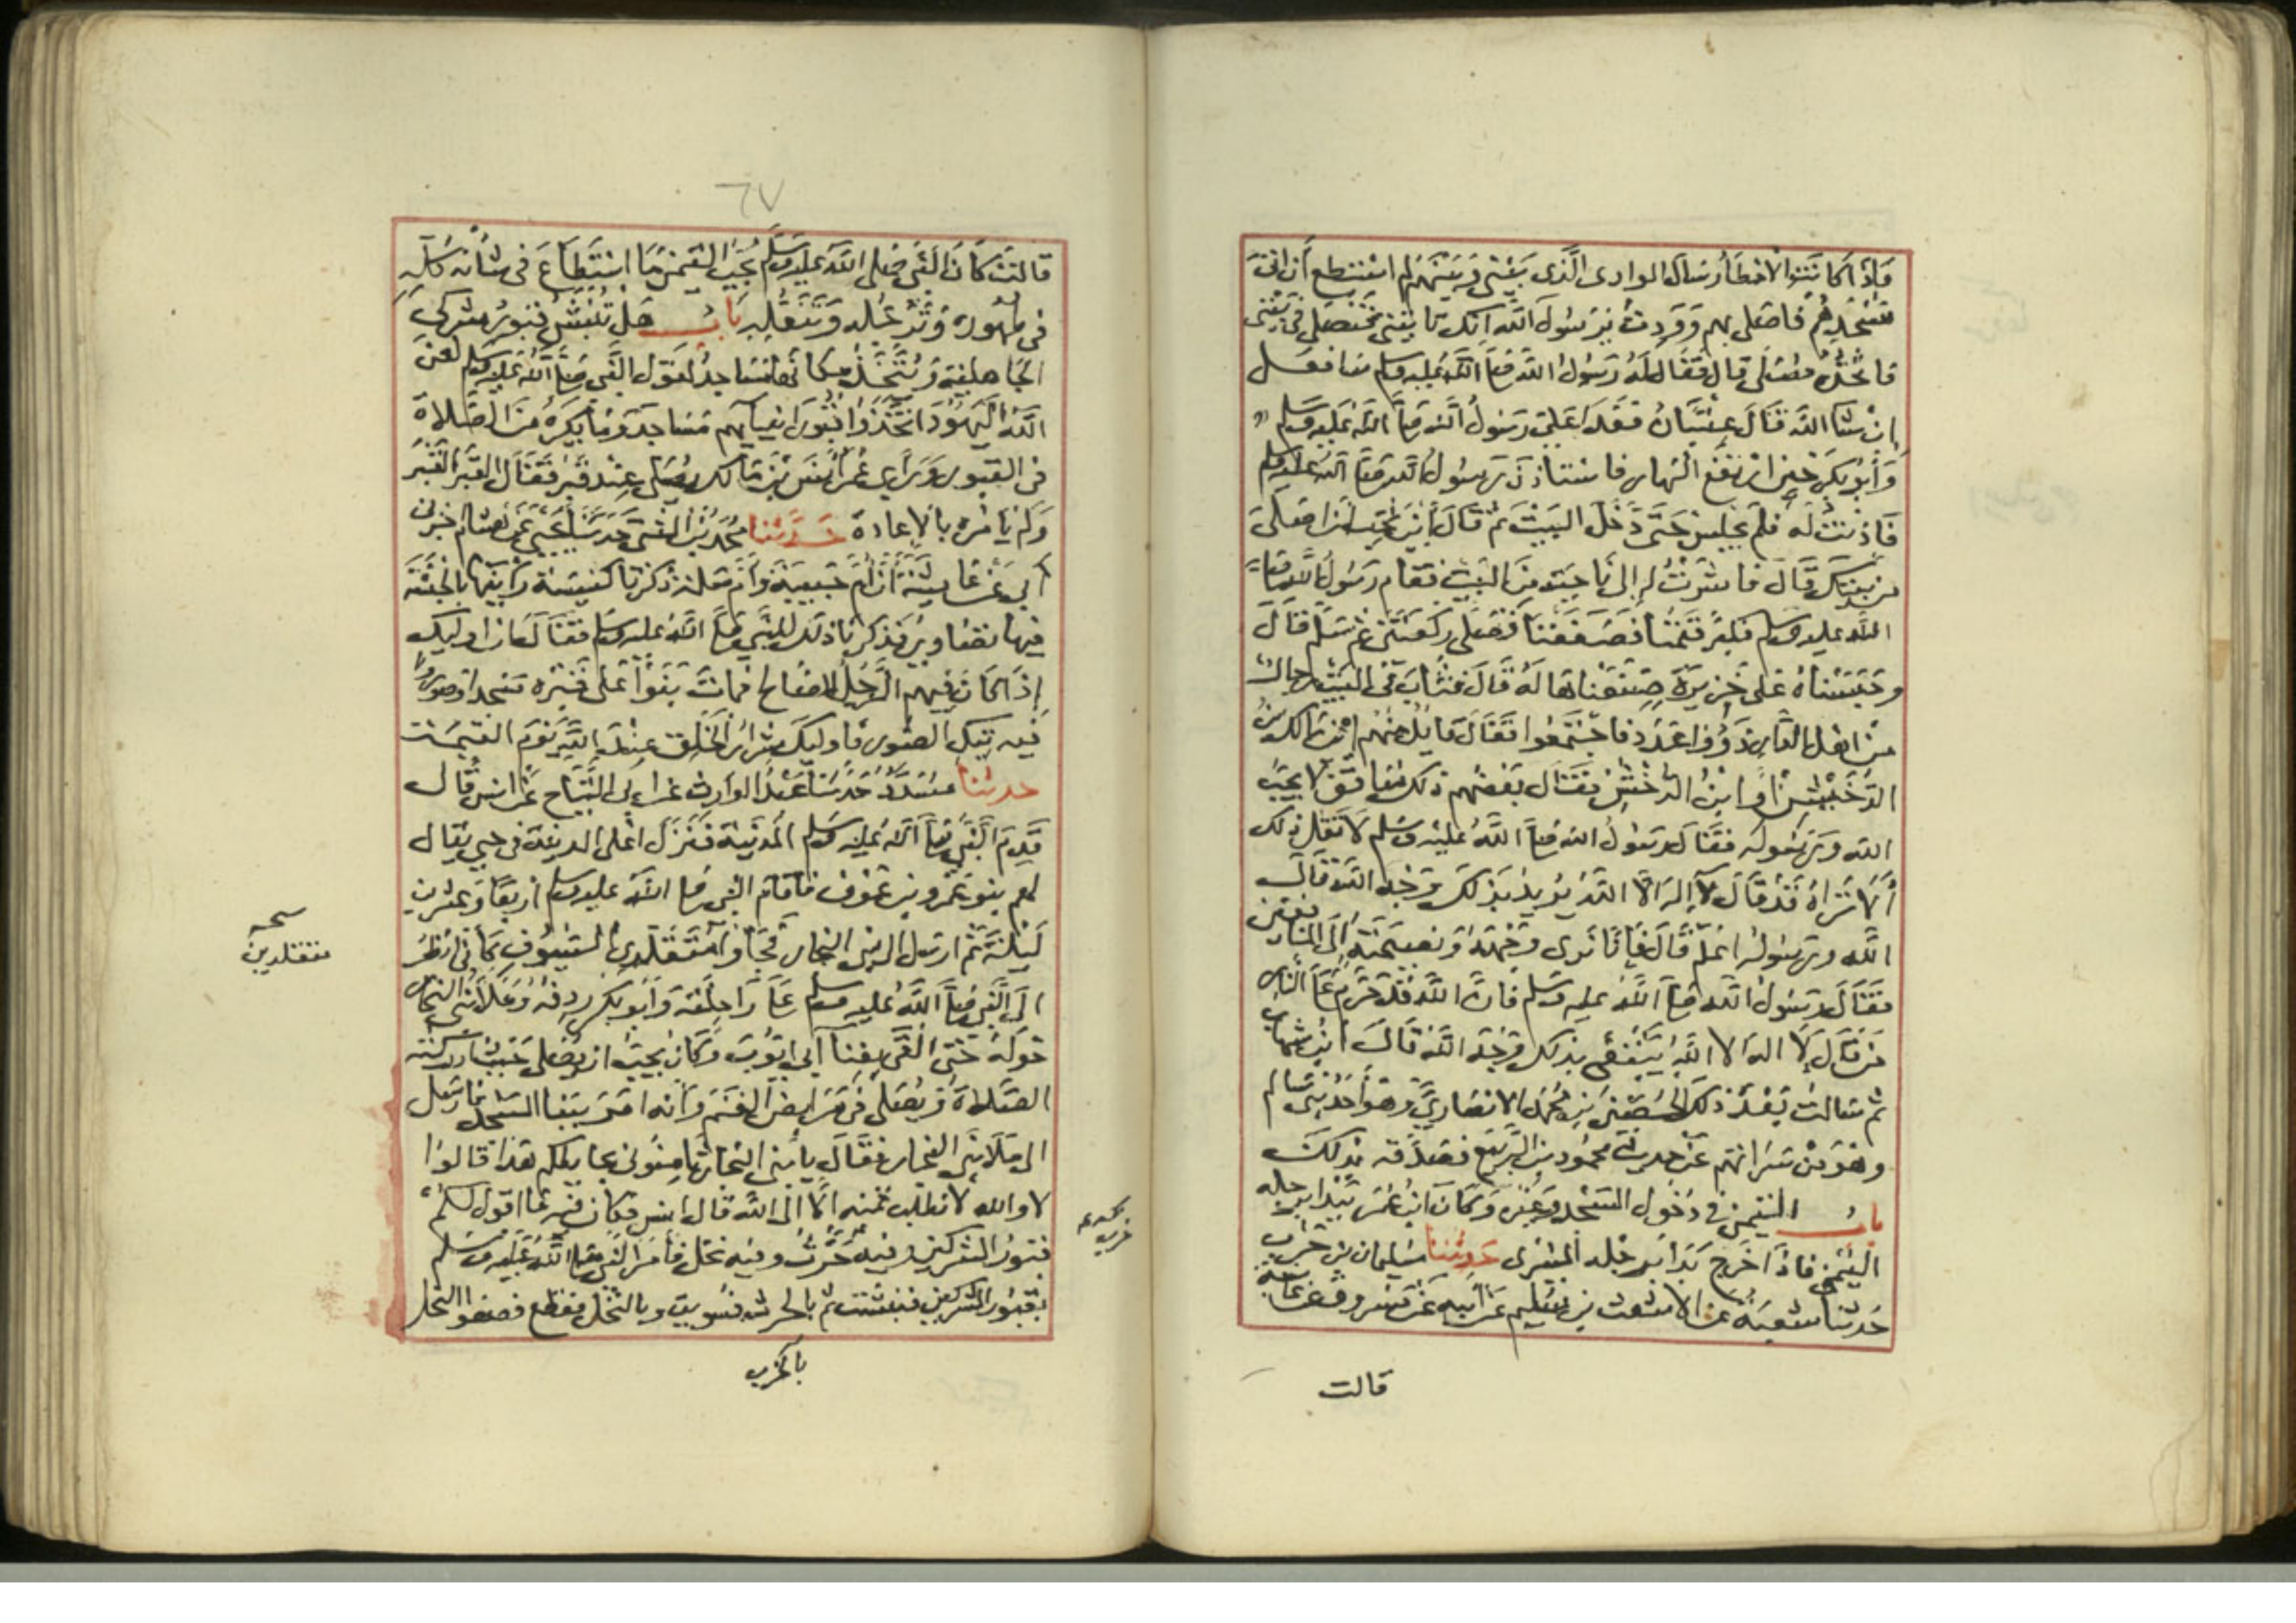 فاذا كانت الامطار سال الوادي الذي بيني وبينهم لم استطع أن اتي
مسجدهم فاصلي بهم ووددت يرسول الله انك تاتيني فتصلي في بيتي
فاتخذه مصلى قال فقال له رسول الله صلى الله عليه وسلم سافعل
ان شا الله قال عتبان فغدا علي رسول الله صلى الله عليه وسلم
وأبو بكر حين ارتفع النهار فاستاذن رسول الله صلى الله عليه وسلم
فاذنت له فلم يجلس حتى دخل البيت ثم قال أين تحب أن اصلي
من بيتك قال فاشرت له إلى ناحية من البيت فقام رسول الله صلى
الله عليه وسلم فكبر فقمنا فصففنا فصلى ركعتين ثم سلم قال
وحبسناه على خزيرة صنعناها له قال فثاب في البيت رجال
من اهل الدار ذوو عدد فاجتمعوا فقال قايل منهم اين مالك بن
الدخيشن او ابن الدخشن فقال بعضهم ذلك منافق لا يحب
الله ورسوله فقال رسول الله صلى الله عليه وسلم لا تقل ذلك
ألا تراه قد قال لا إله الا الله يريد بذلك وجه الله قال
الله ورسوله اعلم قال فانا نرى وجهه ونصيحته إلى المنافقين
فقال رسول الله صلى الله عليه وسلم فان الله قد حرم على النار
من قال لا اله الا الله يبتغي بذلك وجه الله قال ابن شهاب
ثم سالت بعد ذلك الحصين بن محمد الانصاري وهو أحد بني سالم
وهو من سراتهم عن حديث محمود بن الربيع فصدقه بذلك
باب التيمن في دخول المسجد وغيره وكان ابن عمر يبدا برجله
اليمنى فاذا خرج بدا برجله اليسرى حدثنا سليمان بن حرب
حدثنا شعبة عن الاشعث بن سليم عن أبيه عن مسروق عن عائشة
قالت
٦٧
قالت كان النبي صلى الله عليه وسلم يحب التيمن ما استطاع في شأنه كله
في طهوره وترجله وتنعله باب هل تنبش قبور مشركي
الجاهلية ويتخذ مكانها مساجد لقول النبي صلى الله عليه وسلم لعن
الله اليهود اتخذوا قبور انبيائهم مساجد وما يكره من الصلاة
في القبور ورأى عمر أنس بن مالك يصلي عند قبر فقال القبر القبر
ولم يامره بالاعادة حدثنا محمد بن المثنى حدثنا يحيى عن هشام اخبرني
أبي عن عائشة أن أم حبيبة وأم سلمة ذكرتا كنيسة رأينها بالحبشة
فيها تصاوير فذكرتا ذلك للنبي صلى الله عليه وسلم فقال ان اوليك
إذا كان فيهم الرجل الصالح فمات بنوا على قبره مسجدا وصوروا
فيه تيك الصور فاوليك شرار الخلق عند الله يوم القيمة
حدثنا مسدد حدثنا عبد الوارث عن ابي التياح عن انس قال
قدم النبي صلى الله عليه وسلم المدينة فنزل اعلى المدينة في حي يقال
لهم بنو عمرو بن عوف فاقام النبي صلى الله عليه وسلم اربعا وعشرين
ليلة ثم ارسل الى بني النجار فجاؤا متقلدي السيوف كاني انظر
الى النبي صلى الله عليه وسلم على راحلته وأبو بكر ردفه وملأ بني النجار
حوله حتى القى بفنا ابي ايوب وكان يحب ان يصلي حيث ادركته
الصلاة ويصلي في مرابض الغنم وانه امر ببنا المسجد فارسل
الى ملا بني النجار فقال يا بني النجار ثامنوني بحايطكم هذا قالوا
لا والله لا نطلب ثمنه الا الى الله قال انس فكان فيه ما اقول لكم
قبور المشركين وفيه حرث وفيه نخل فأمر النبي صلى الله عليه وسلم
بقبور المشركين فنبشت ثم بالحرث فسويت وبالنخل فقطع فصفوا النخل
بالخرب
متقلدين
خرب